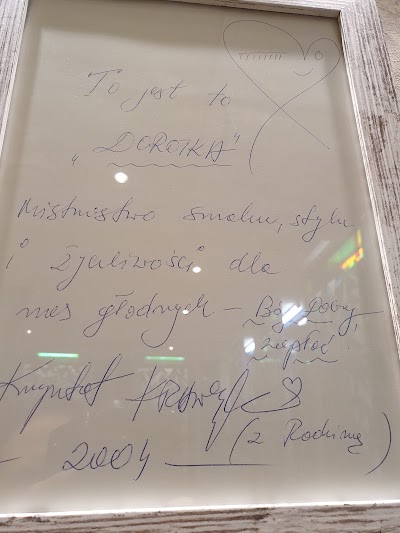 To jest to
„DOROTKA"
Mistrzostwo smaku, stylu
i życzliwości dla
nas głodnych – Bóg Dobry,
zapłać
Krzysztof
(z Rodziną)
– 2004 –